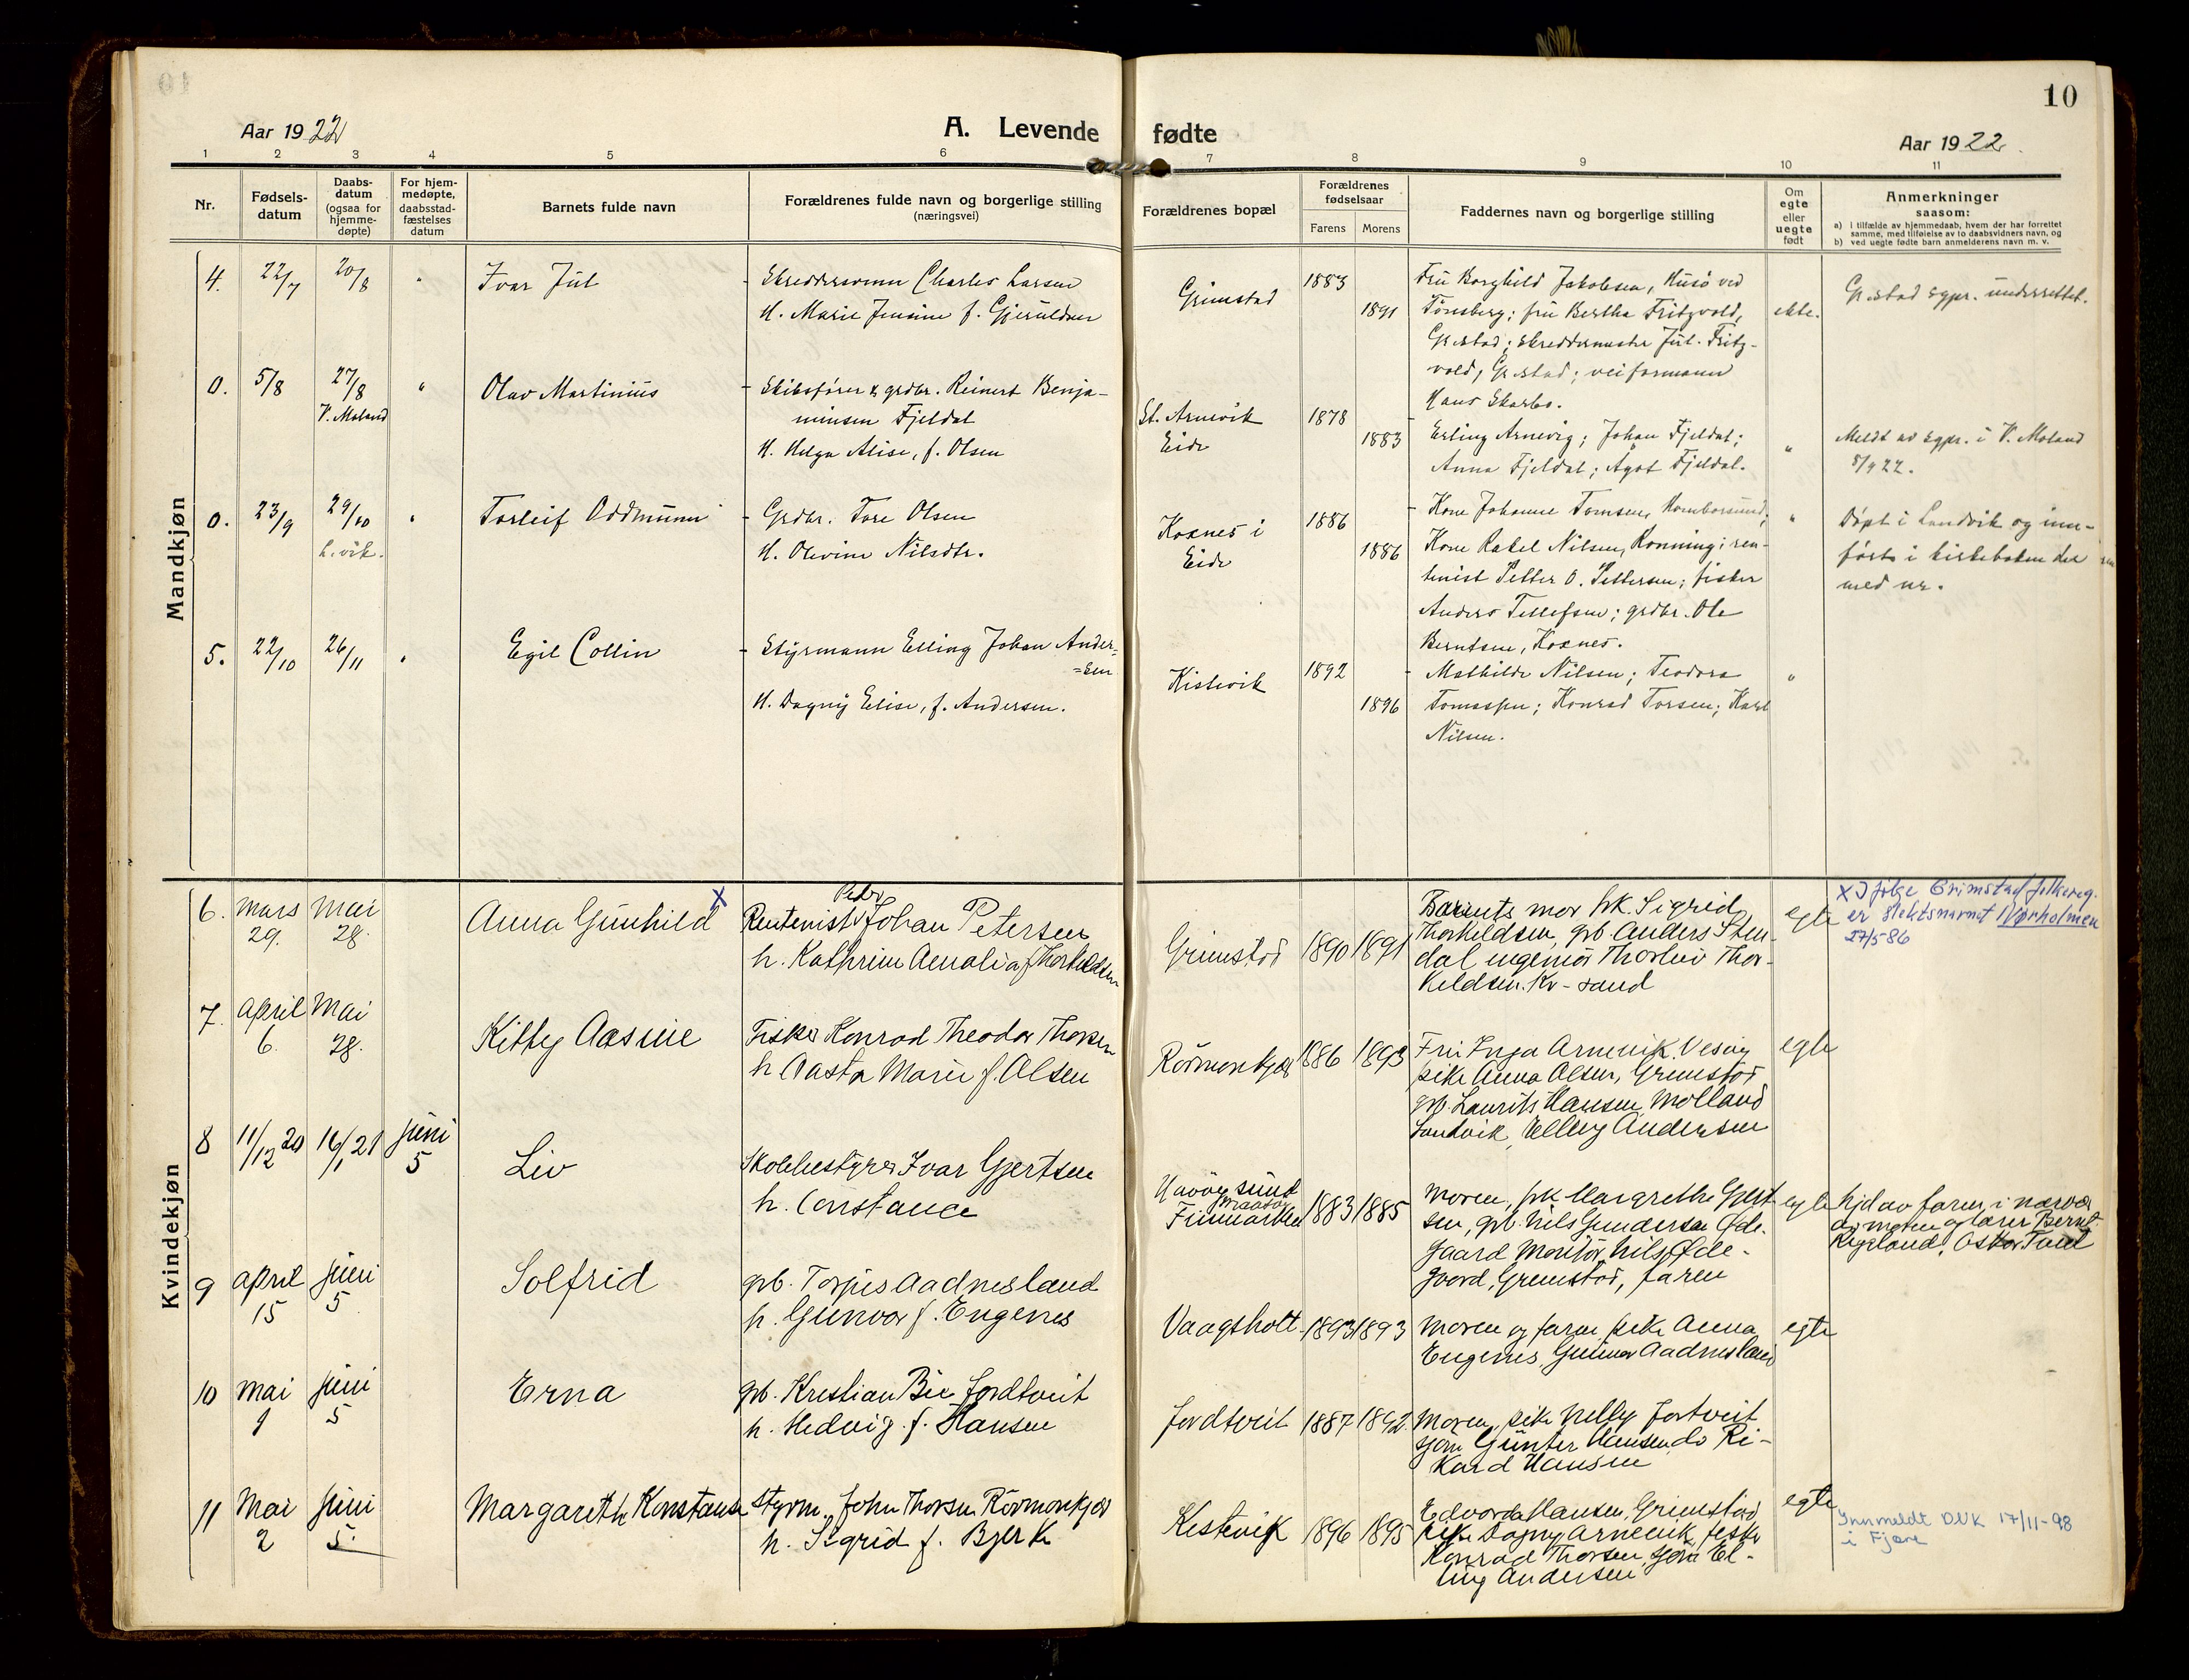 10
Aar 1922
A. Levende fødte
Aar 1922.
1 2 3 4 5 6 7 8 9 10 11
Nr.
Fødsels-
datum
Daabs-
datum
(ogsaa for
hjemme-
døpte)
For hjem-
medøpte,
daabsstad-
fæstelses
datum
Barnets fulde navn
Forældrenes fulde navn og borgerlige stilling
(næringsvei)
Forældrenes bopæl
Forældrenes
fødselsaar
Farens Morens
Faddernes navn og borgerlige stilling
Om
egte
eller
uegte
født
Anmerkninger
saasom:
a) i tilfælde av hjemmedaab, hvem der har forrettet
samme, med tilføielse av to daabsvidners navn, og
b) ved uegte fødte barn anmelderens navn m. v.
Mandkjøn
4. 22/7 20/8 " Ivar Jul
Skreddersvenn Charles Larsen
H. Marie Jensine f. Gjeruldsen
Grimstad 1883
1891
Fru Borghild Jakobsen, Husø ved
Tønsberg; fru Bertha Fritzvold,
Gr.stad; skreddermester Jul. Fritz-
vold, Gr.stad; veiformann
Hans Skarbo.
ekte.
Gr.stad sgpr. underrettet.
0. 5/8 27/8 " Olav Martinius
V. Moland
Skibsfører & grdbr. Reinert Benja-
minsen Fjeldal
H. Helga Alise, f. Olsen
St. Arnevik
Eide
1878
1883
Erling Arnevig; Johan Fjeldal;
Anna Fjeldal; Agot Fjeldal.
"
Meldt av sgpr. i V. Moland
5/9 22.
0. 23/9 29/10 " Torleif Oddmunn
L.vik.
Grdbr. Tore Olsen
H. Olevine Nilsdtr.
Kosnes i
Eide
1886
1886
Kone Johanne Tomsen, Homborsund;
Kone Rakel Nilsen, Rønning; ren-
tenist Petter O. Pettersen; fisker
Anders Tellefsen; grdbr. Ole
Berntsen, Kosnes.
"
Døpt i Landvik og inn-
ført i kirkeboken der
med nr.
5. 22/10 26/11 " Egil Collin
Styrmann Elling Johan Ander-
=sen
H. Dagny Elise, f. Andersen.
Kistevik 1892
1896
Mathilde Nilsen; Teodora
Tomassen; Konrad Torsen; Karl
Nilsen.
"
Kvindekjøn
6. Mars Mai Anna Gunhild X
29. 28.
Peder
Rentenist Johan Petersen
h. Kathrine Amalia f Thorkildsen
Grimstad 1890 1891
Barnets mor frk. Sigrid
Thorkildsen, gb. Anders Sten-
dal ingeniør Thorleiv Thor-
kildsen. Kr-sand
egte
X I følge Grimstad folkereg.
er slektsnavnet Nørholmen
27/5 86
7. April Mai Kitty Aasine
6. 28.
Fisker Konrad Theodor Thorsen
h Aasta Marie f. Olsen
Rørmonkjær 1886 1893
Fru Inga Arnevik, Vesøy
pike Anna Olsen, Grimstad
gb. Laurits Hansen Molland
Landvik, Elling Andersen
egte
8 11/12 20 16/1 21 Juni Liv
5
Skolebestyrer Ivar Gjertsen
h. Constance
Havøysund
Maasø
Finmarken 1883 1885
Moren, frk Margrethe Gjert-
sen, gb. Nils Gundersen Øde-
gaard Montør Nils Øde-
gaard, Grimstad, faren
egte
hjd av faren i nærvær
av moren og lærer Bernt
Rygeland, Oskar
9 April Juni Solfrid
15 5
gb. Torjus Aadnesland
h. Gunvor f. Eugenes
Vaagsholt 1893 1893
Moren og faren, pike Anna
Eugenes, Gunnar Aadnesland
egte
10 Mai Juni Erna
1 5
gb. Kristian Bie Jordtveit
h. Hedvig f. Hansen
Jordtveit 1887 1892
Moren, pike Nelly Jortveit
sjøm Günter Hansen do Ri-
kard Hansen
11 Mai Juni Margareth Konstanse
2 5.
Styrm. John Thorsen Rørmonkjær
h. Sigrid f. Bjerke
Kistevik 1896 1895
Edvarda Hansen, Grimstad,
pike Dagny Arnevik, fisker
Konrad Thorsen, sjøm El-
ling Andersen
egte
Innmeldt DNK 17/11-98
i Fjære